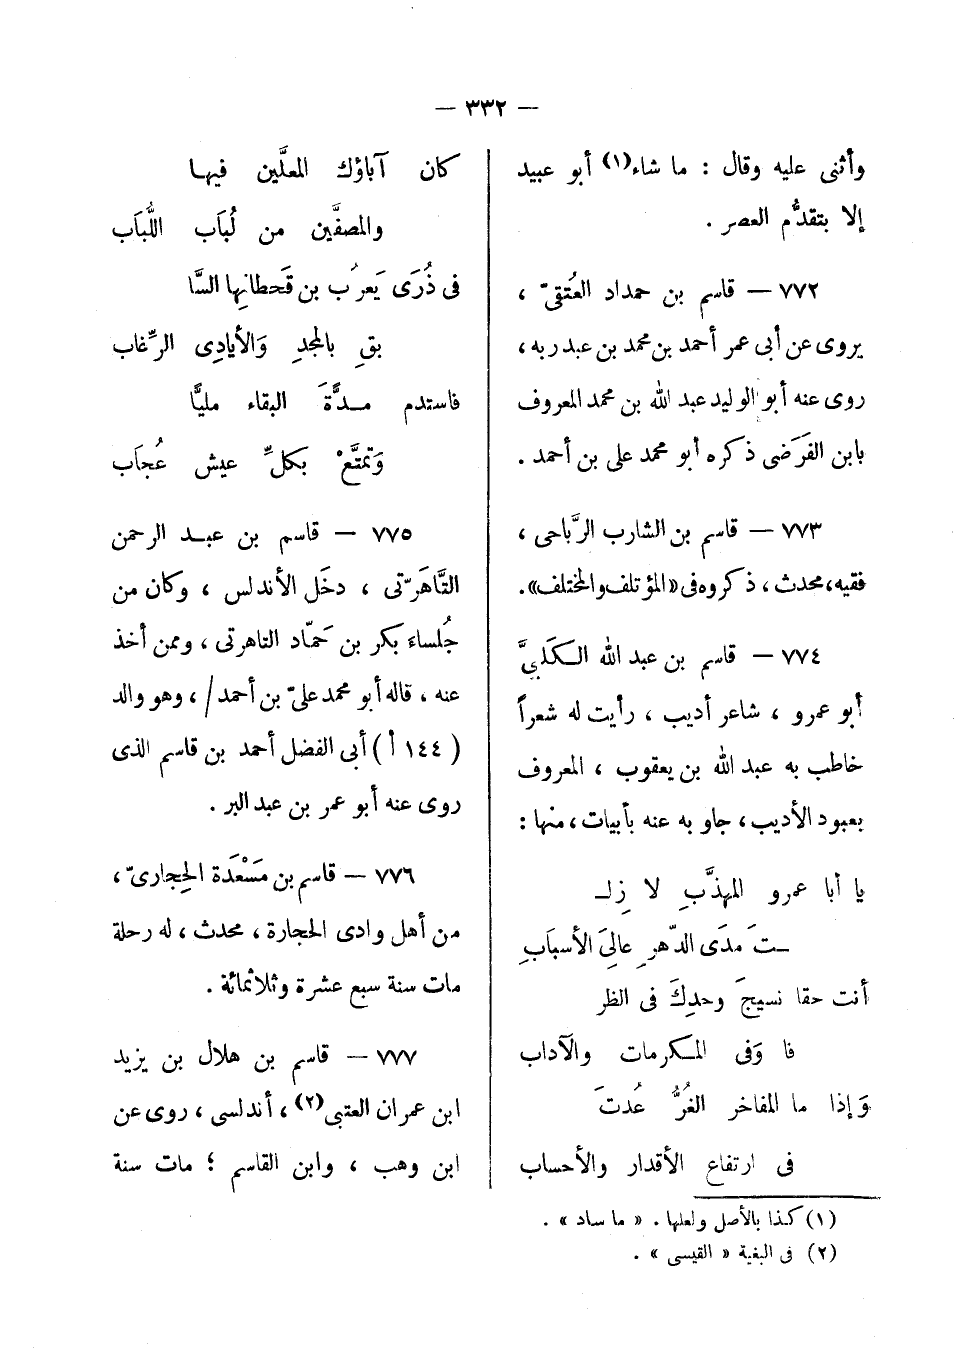 — ٣٣٢ —
وأثنى عليه وقال : ما شاء(١) أبو عبيد
إلا بتقدُّم العصر .
٧٧٢ — قاسم بن حمداد العُتقىّ ،
يروى عن أبى عمر أحمد بن محمد بن عبد ربه ،
روى عنه أبو الوليد عبد الله بن محمد المعروف
بابن الفَرَضى ذكره أبو محمد على بن أحمد .
٧٧٣ — قاسم بن الشارب الرَّباحى ،
فقيه، محدث ، ذكروه فى «المؤتلف والمختلف» .
٧٧٤ — قاسم بن عبد الله الكلبىَّ
أبو عمرو ، شاعر أديب ، رأيت له شعراً
خاطب به عبد الله بن يعقوب ، المعروف
بعبود الأديب ، جاوبه عنه بأبيات ، منها :
يا أبا عمرو المهذَّبِ لا زلـ
ـتَ مدَى الدّهرِ عالِىَ الأسبابِ
أنت حقا نسيجَ وحدِكَ فى الظر
فا وَفى المكرمات والآداب
وَإذا ما المفاخر الغُرُّ عُدتَ
فى ارتفاع الأقدار والأحساب
كان آباؤك المعلَّين فيها
والمصفَّين من لُبَاب اللُّبَاب
فى ذُرَى يَعرُب بن قَحطانِها السَّا
بقِ بالمجدِ وَالأيادِى الرِّغاب
فاستدم مدَّةَ البقاء مليًّا
وَتمتَّعْ بكلِّ عيش عُجاَب
٧٧٥ — قاسم بن عبد الرحمن
التَّاهَرتّى ، دخَل الأندلس ، وكان من
جُلساء بكر بن حَمّاد التاهرتى ، وممن أخذ
عنه ، قاله أبو محمد علىّ بن أحمد / ، وهو والد
( ١٤٤ أ ) أبى الفضل أحمد بن قاسم الذى
روى عنه أبو عمر بن عبد البر .
٧٧٦ — قاسم بن مَسْعَدة الحِجارىّ ،
من أهل وادى الحجارة ، محدث ، له رحلة
مات سنة سبع عشرة وثلاثمائة .
٧٧٧ — قاسم بن هلال بن يزيد
ابن عمران العتبى(٢) ، أندلسى ، روى عن
ابن وهب ، وابن القاسم ؛ مات سنة
(١) كذا بالأصل ولعلها . « ما ساد » .
(٢) فى البغية « القيسى » .